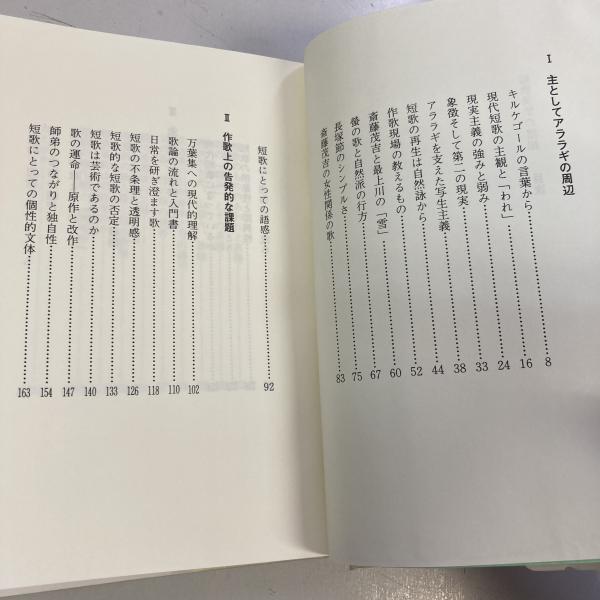 Ⅰ 主としてアララギの周辺
キルケゴールの言葉から…………8
現代短歌の主観と「われ」…………16
現実主義の強みと弱み…………24
象徴そして第二の現実…………33
アララギを支えた写生主義…………38
短歌の再生は自然詠から…………44
作歌現場の教えるもの…………52
斎藤茂吉と最上川の「雪」…………60
螢の歌と自然派の行方…………67
長塚節のシンプルさ…………75
斎藤茂吉の女性関係の歌…………83
短歌にとっての語感…………92
Ⅱ 作歌上の告発的な課題
万葉集への現代的理解…………102
歌論の流れと入門書…………110
日常を研ぎ澄ます歌…………118
短歌の不条理と透明感…………126
短歌的な短歌の否定…………133
短歌は芸術であるのか…………140
歌の運命――原作と改作…………147
師弟のつながりと独自性…………154
短歌にとっての個性的文体…………163